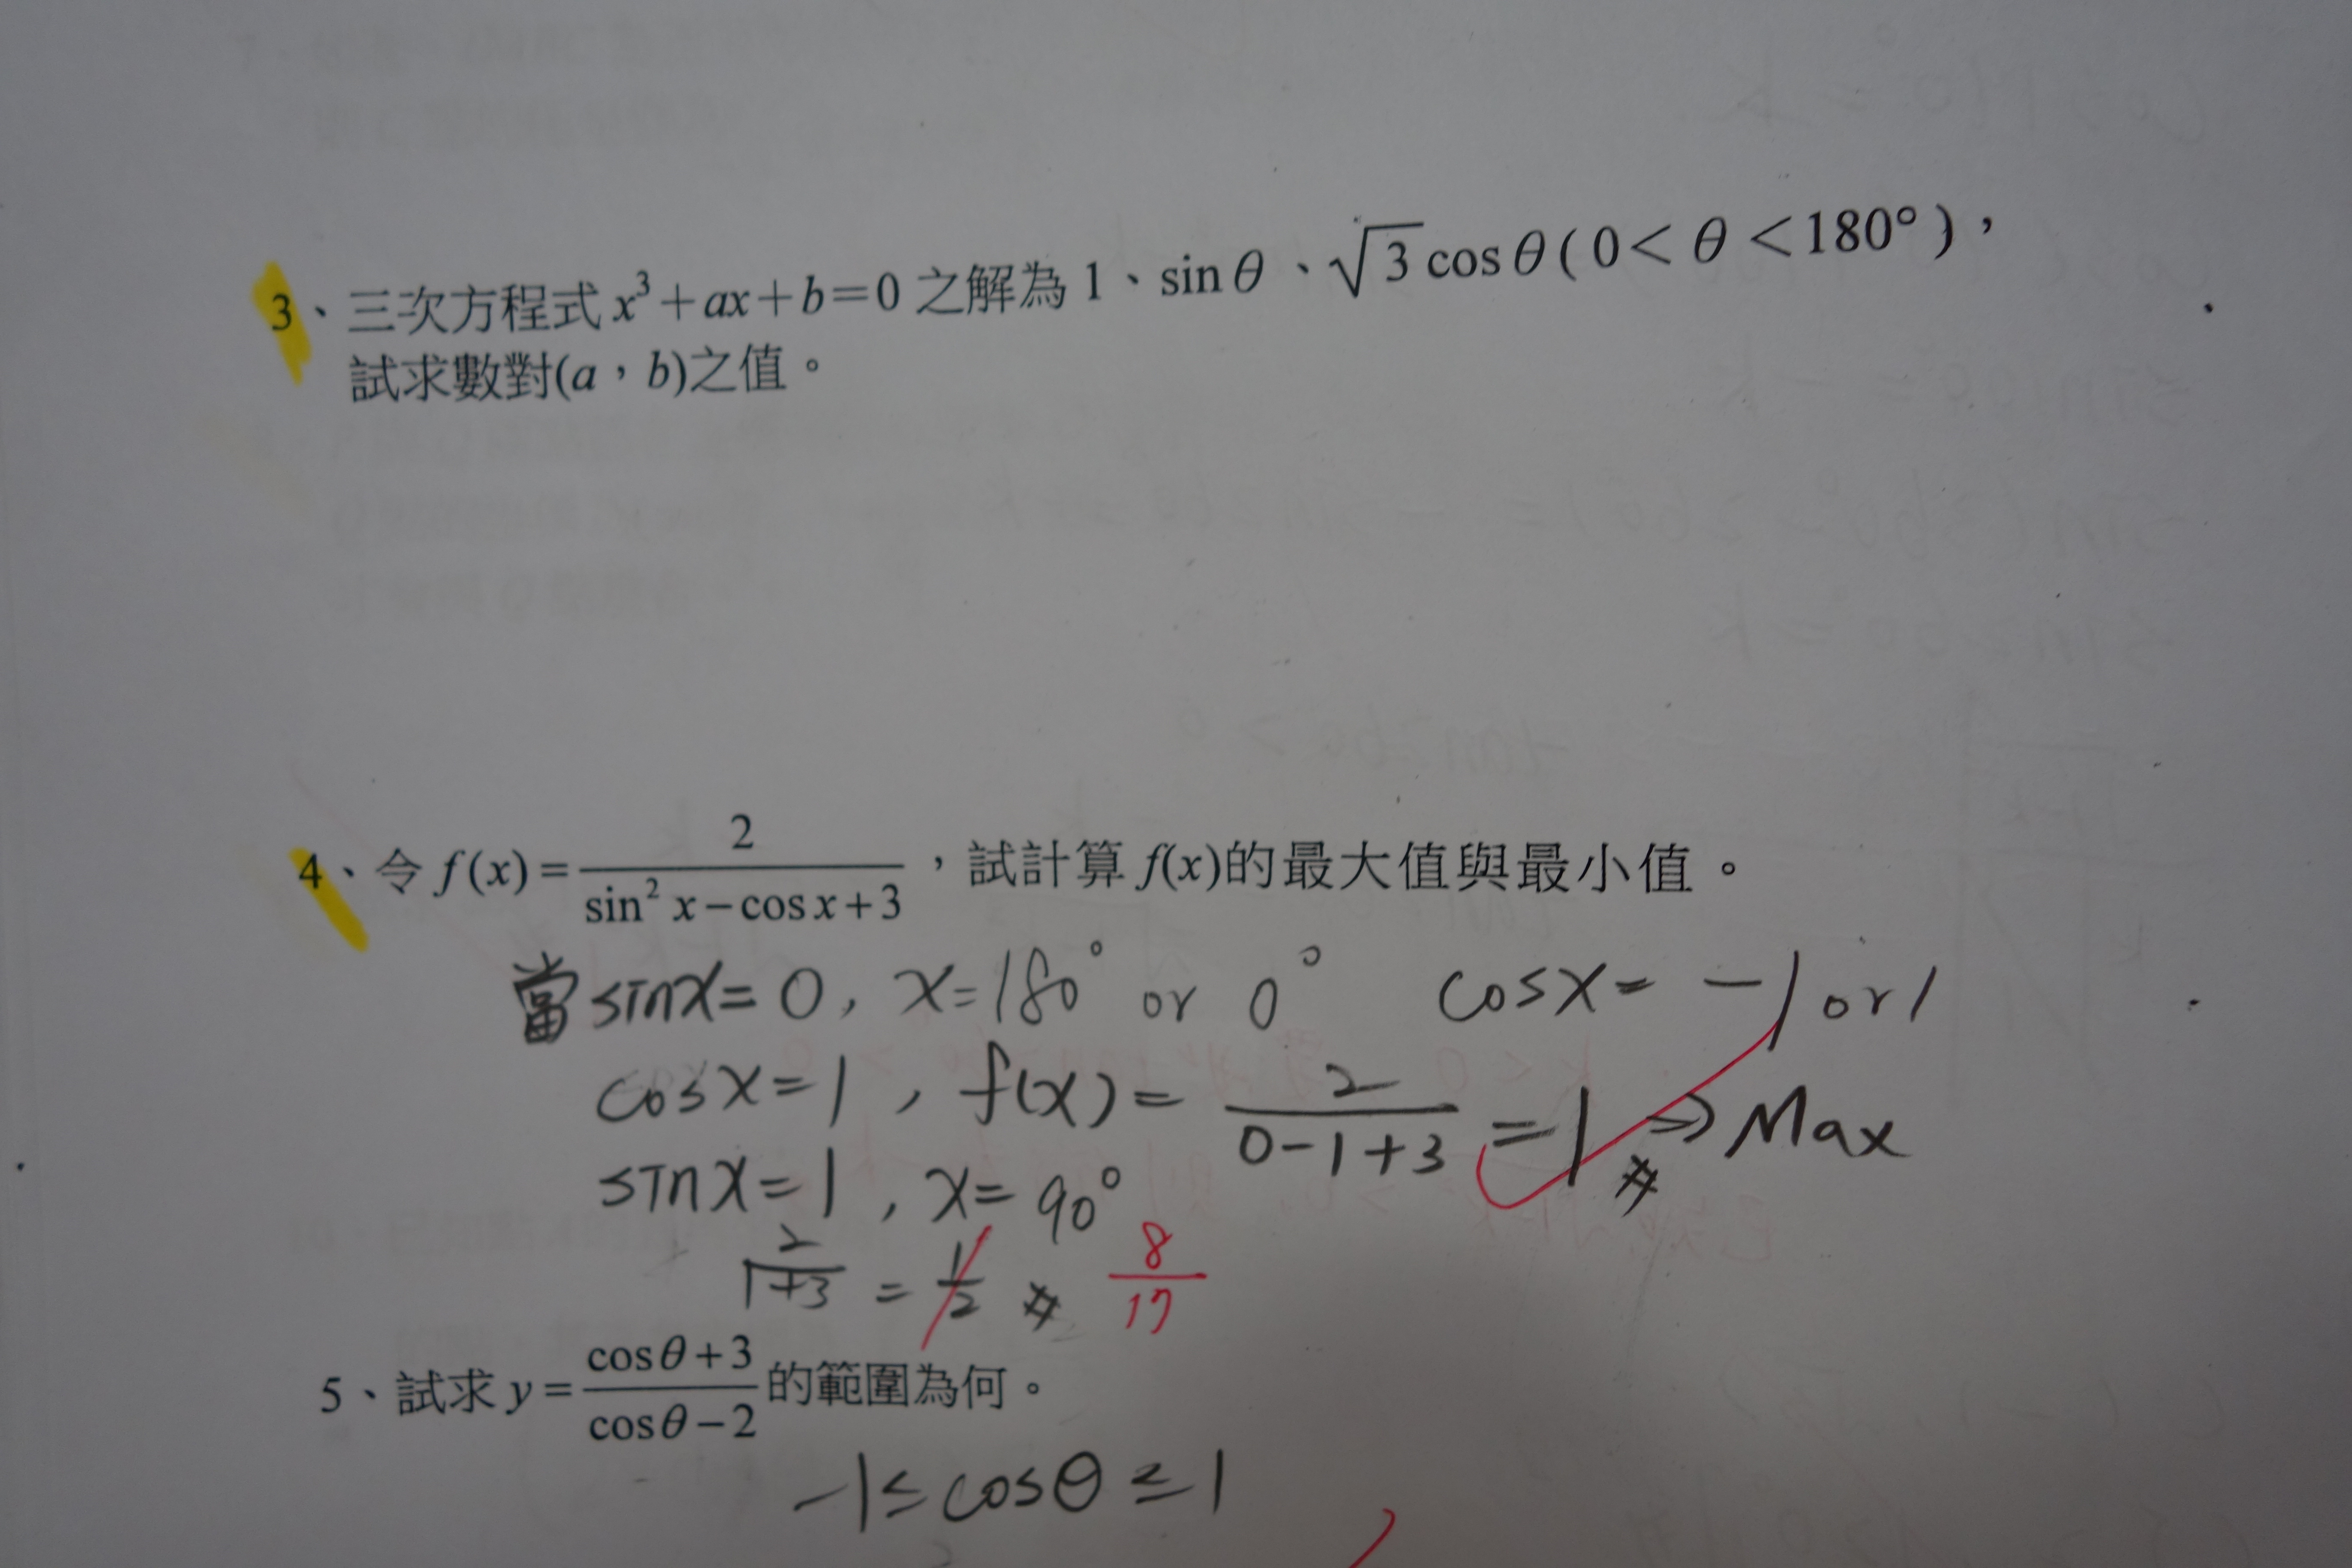 3、三次方程式 x³+ax+b=0 之解為 1、sinθ、√3cosθ(0<θ<180°)，
試求數對(a，b)之值。
4、令 f(x)=2/(sin² x−cos x+3)，試計算 f(x)的最大值與最小值。
當 sinx=0, x=180° or 0° cosx= −1 or 1
cosx=1, f(x)= 2/(0−1+3) =1 # → Max
sinx=1, x=90°
2/(1+3) = 1/2 # 8/17
5、試求 y=(cosθ+3)/(cosθ−2)的範圍為何。
−1≤cosθ≤1